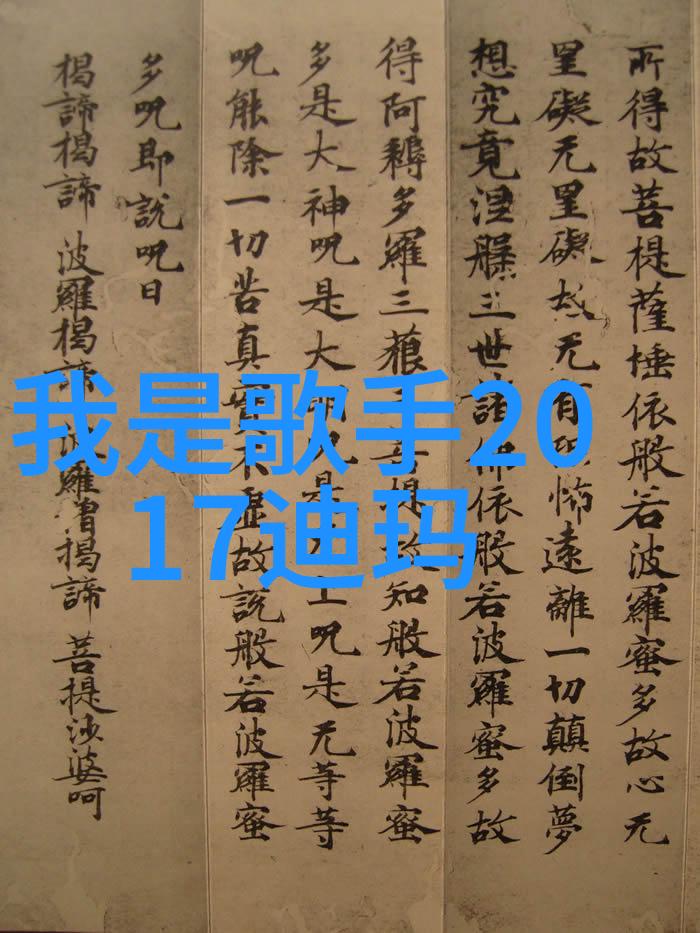 所得故菩提薩埵依般若波羅蜜多故心无
罣礙无罣礙故无有恐怖遠離一切顛倒夢
想究竟涅槃三世諸佛依般若波羅蜜多故
得阿耨多羅三藐三菩提故知般若波羅蜜
多是大神呪是大明呪是无上呪是无等等
呪能除一切苦真實不虛故說般若波羅蜜
多呪即說呪曰
揭諦揭諦 波羅揭諦 波羅僧揭諦 菩提沙婆呵
我是歌手20
17迪玛